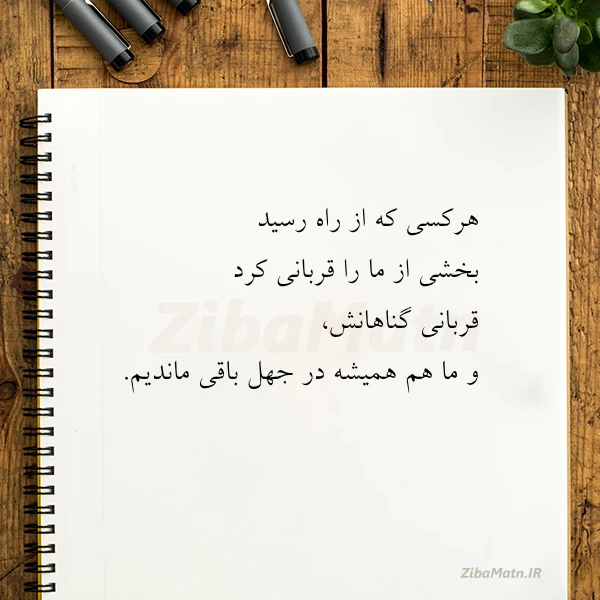 هرکسی که از راه رسید
بخشی از ما را قربانی کرد
قربانی گناهانش،
و ما هم همیشه در جهل باقی ماندیم.
ZibaMatn
ZibaMatn.IR